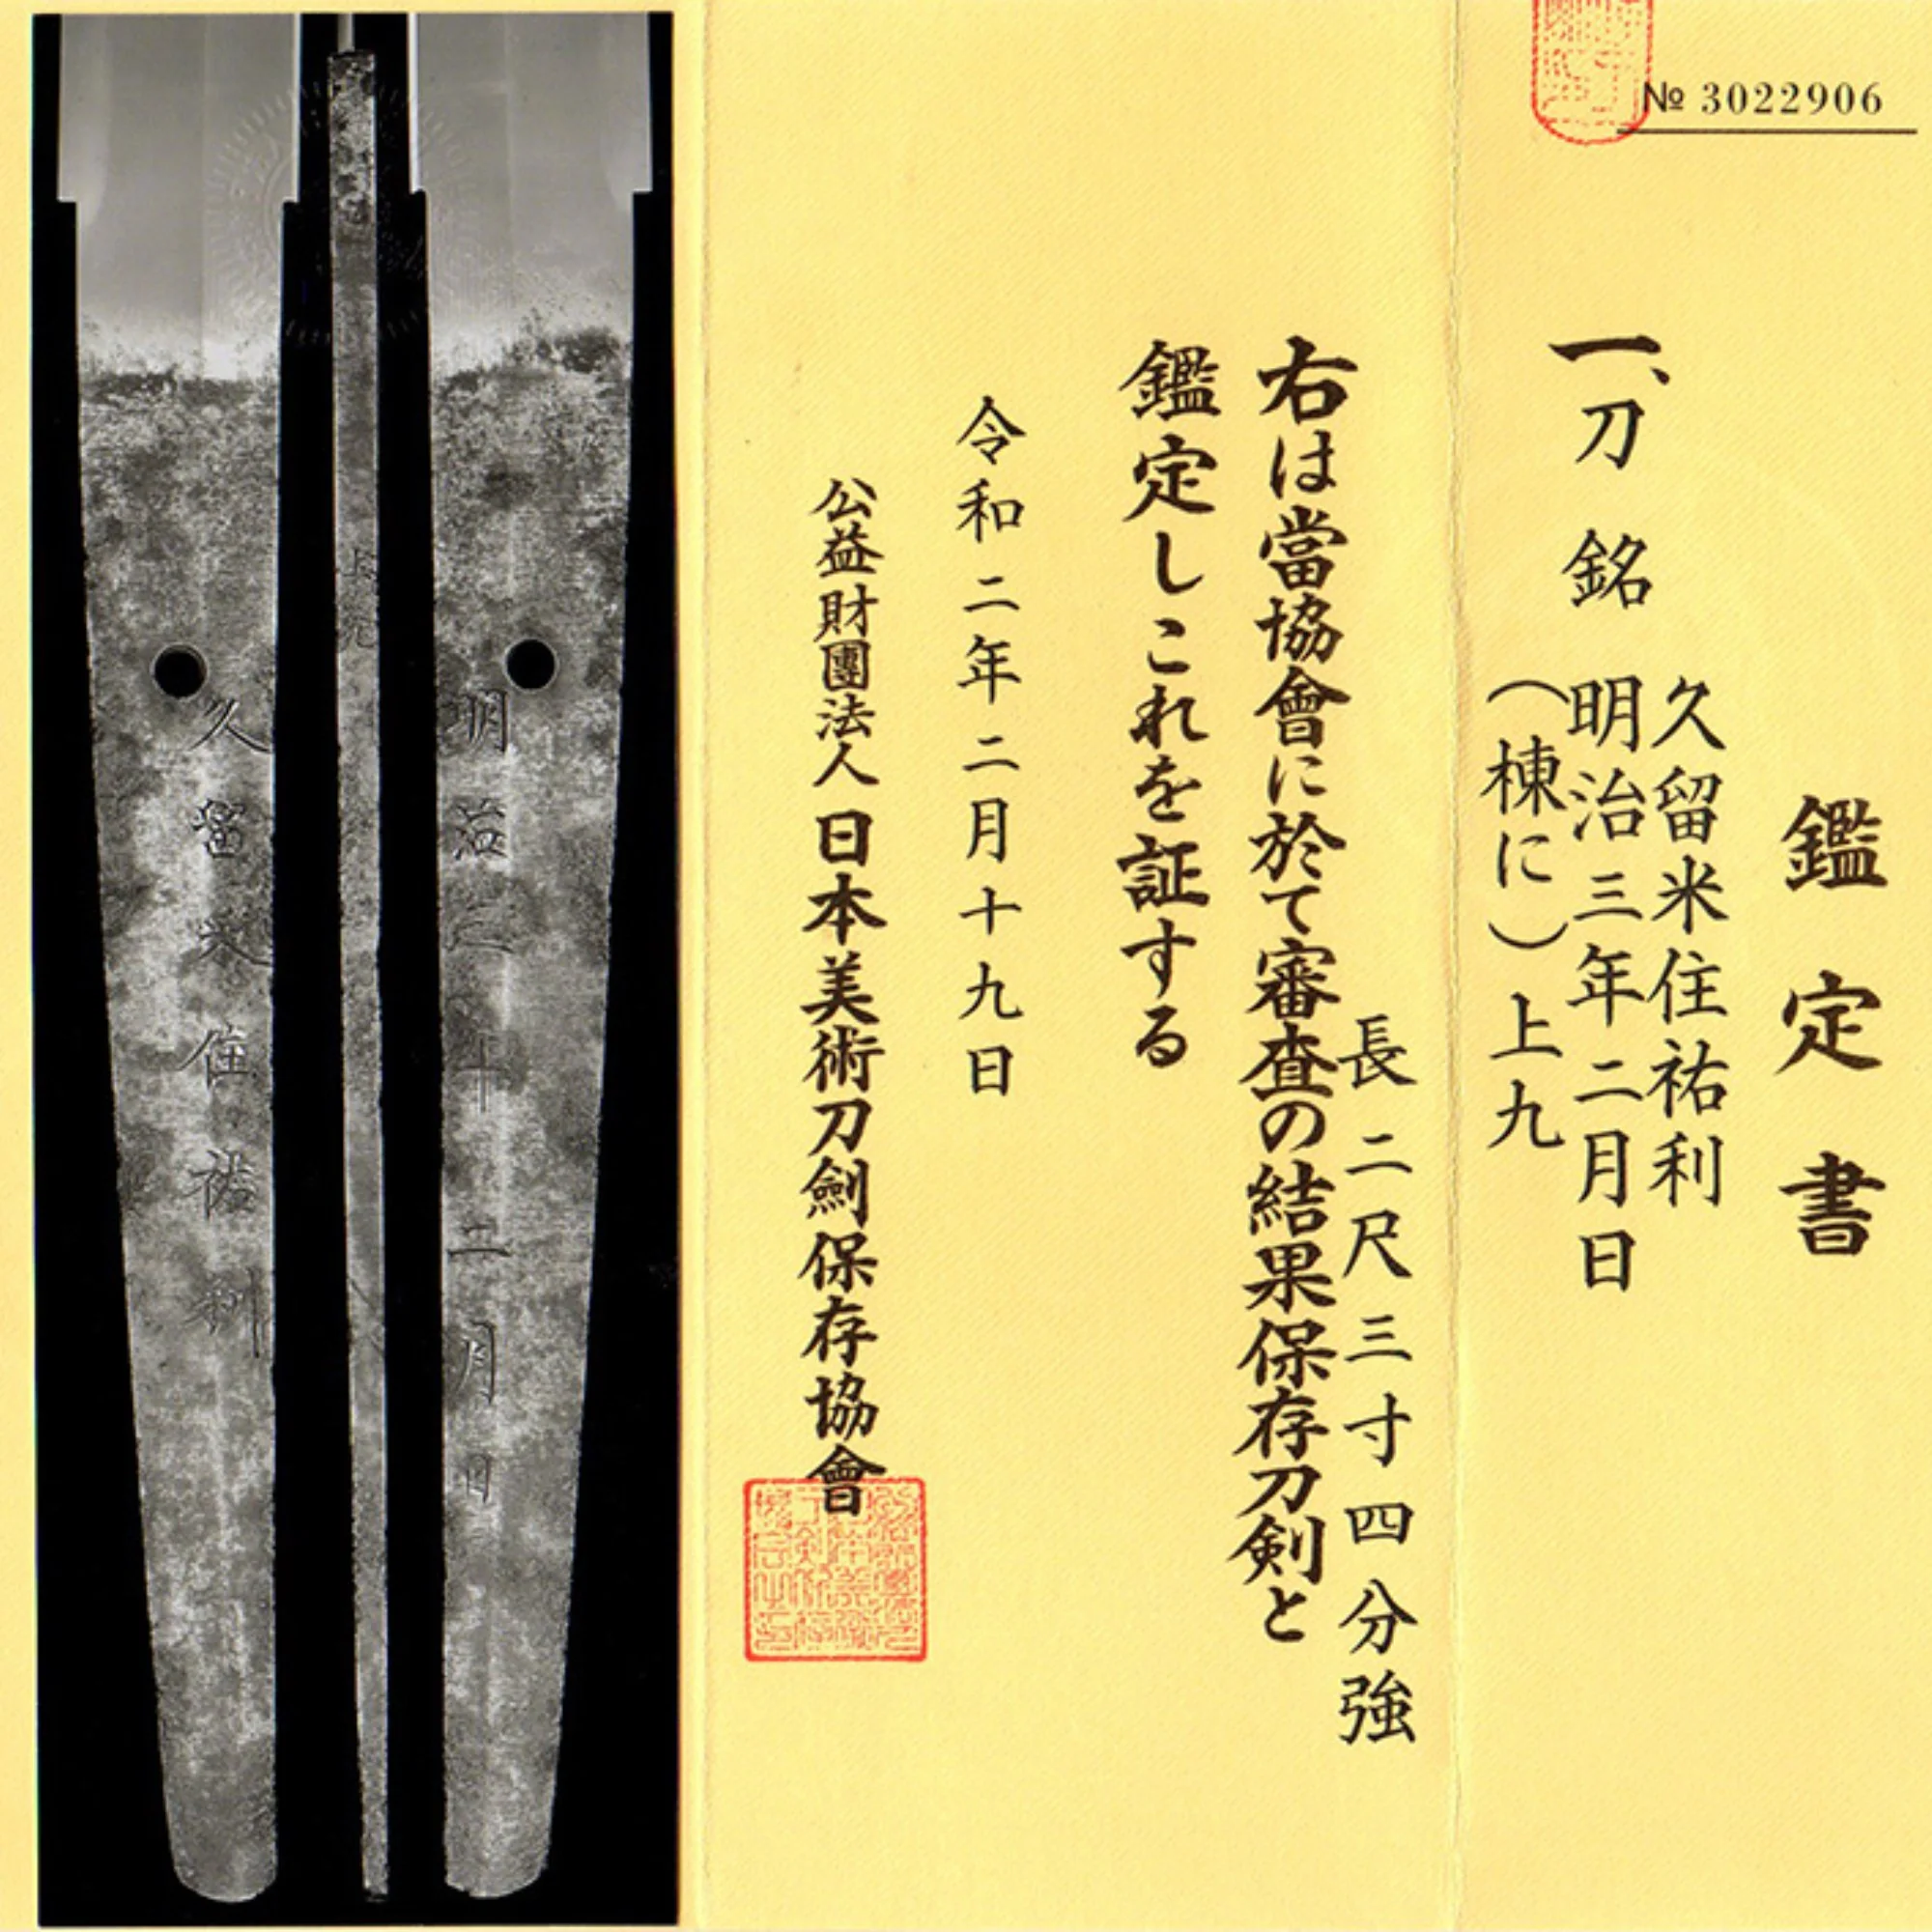 № 3022906
鑑定書
一、刀 銘 久留米住祐利
明治三年二月日
(棟に)上九
長 二尺三寸四分強
右は當協會に於て審査の結果保存刀剣と
鑑定しこれを証する
令和二年二月十九日
公益財團法人 日本美術刀劍保存協會
明治三年二月日
上九
久留米住祐利